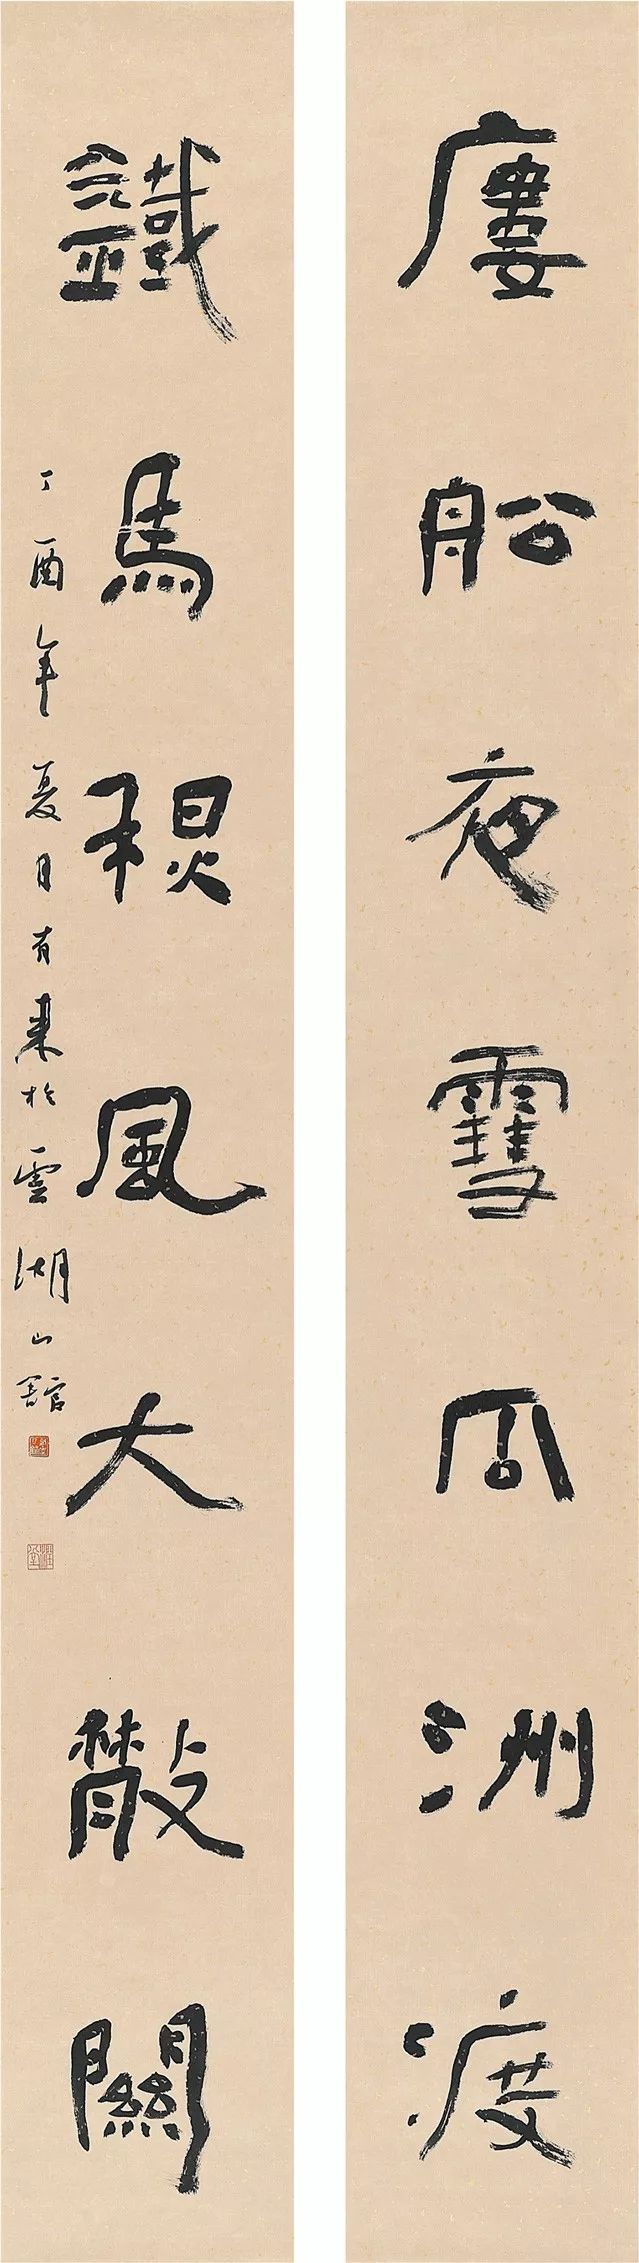 廔船夜雪瓜洲渡
鐵馬秋風大散關
丁酉年夏月有來於雲湖山館